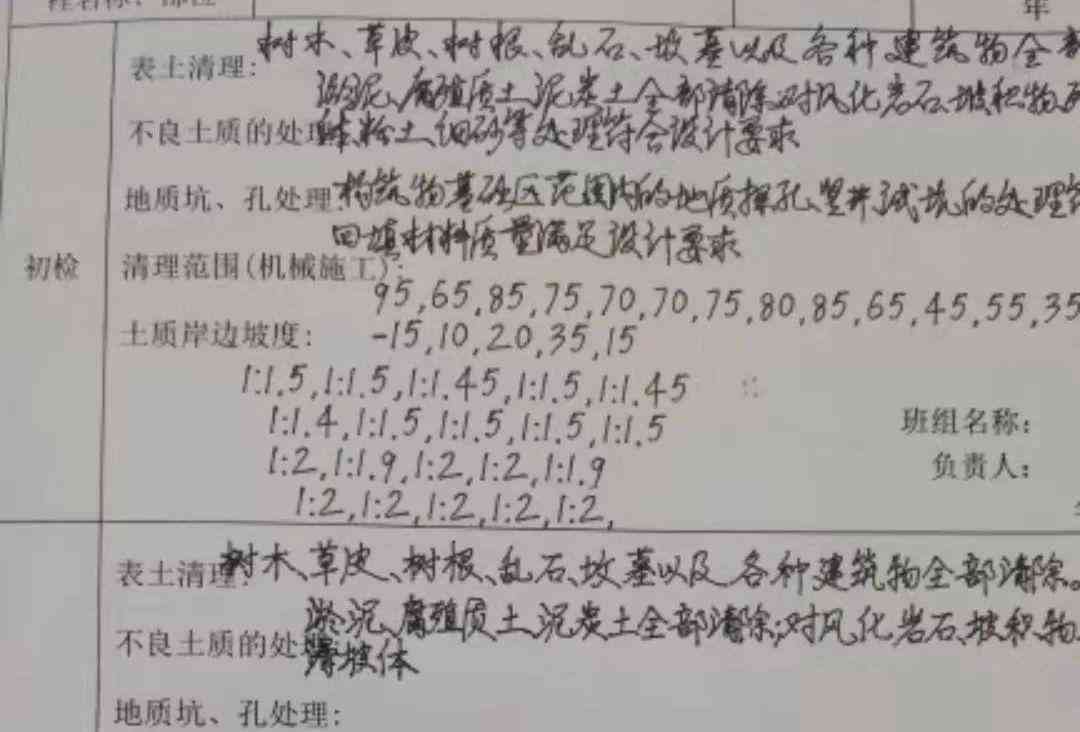 年
表土清理:树木、草皮、树根、乱石、坟墓以及各种建筑物全部
淤泥、腐殖质土、泥炭土全部清除;对风化岩石、坡积物、
不良土质的处理 体、粉土、细砂等处理符合设计要求
地质坑、孔处理 构筑物基础区范围内的地质探孔、竖井、试坑的处理
回填材料质量满足设计要求
初检
清理范围(机械施工):
95,65,85,75,70,70,75,80,85,65,45,55,35
土质岸边坡度: -15,10,20,35,15
1:1.5,1:1.5,1:1.45,1:1.5,1:1.45
1:1.4,1:1.5,1:1.5,1:1.5,1:1.5
班组名称:
1:2,1:1.9,1:2,1:2,1:1.9
负责人:
1:2,1:2,1:2,1:2,1:2,
表土清理:树木、草皮、树根、乱石、坟墓以及各种建筑物全部清除。
淤泥、腐殖质土、泥炭土全部清除;对风化岩石、坡积物、
不良土质的处理 滑坡体
地质坑、孔处理: